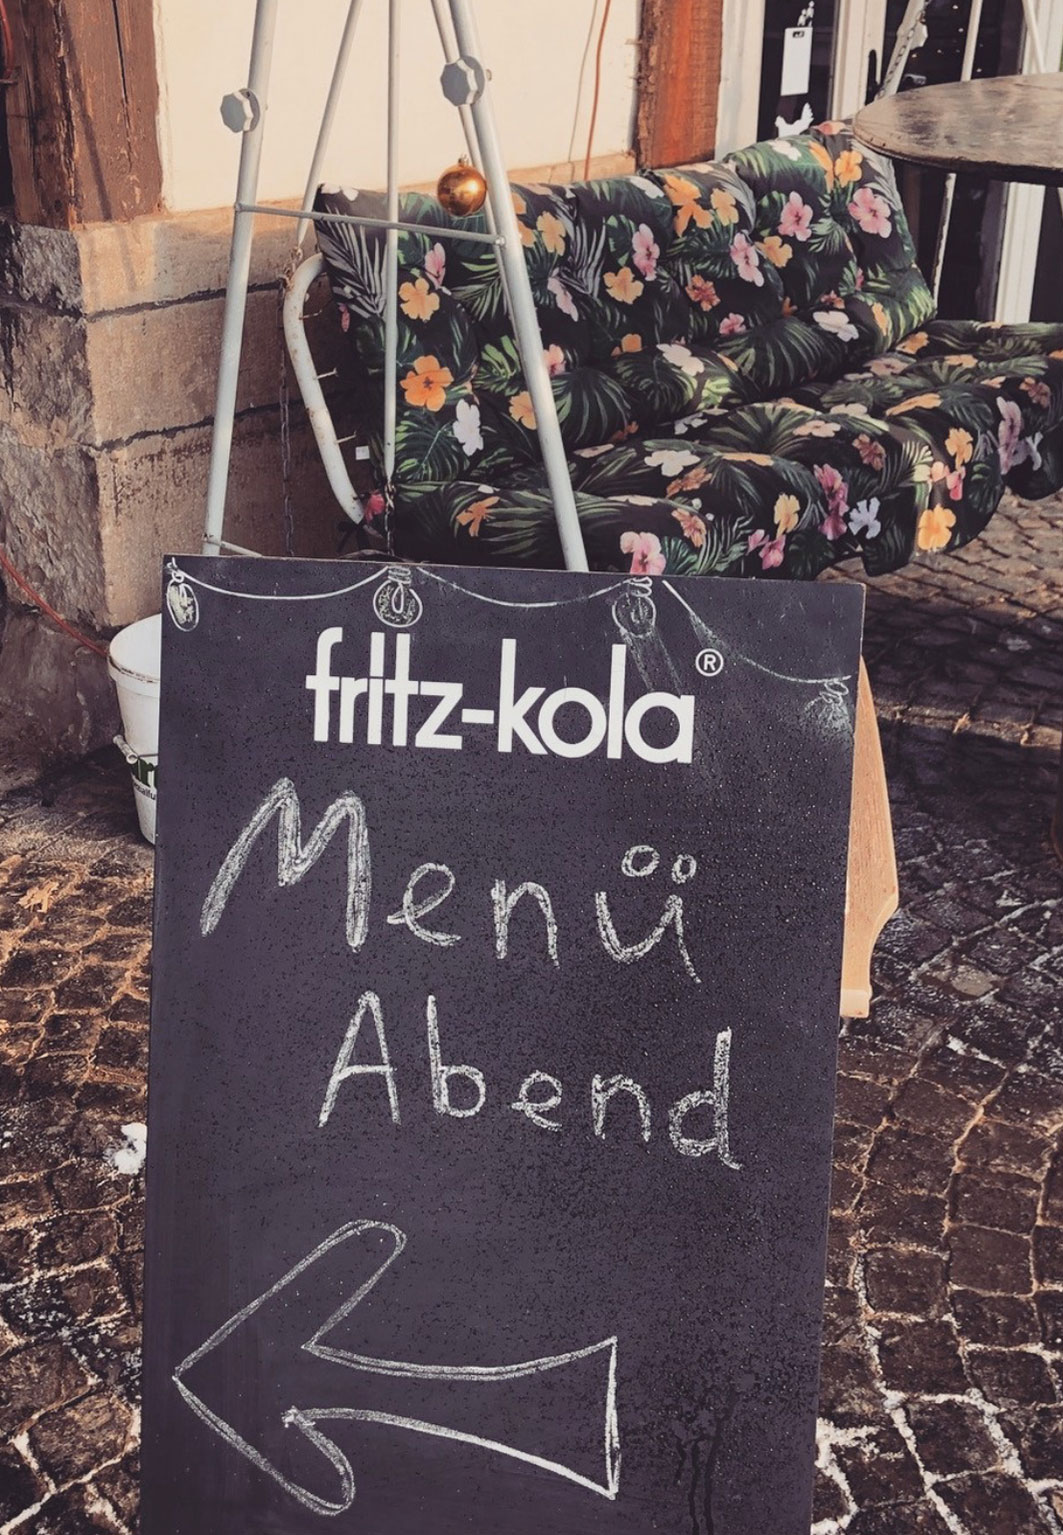 fritz-kola®
Menü
Abend